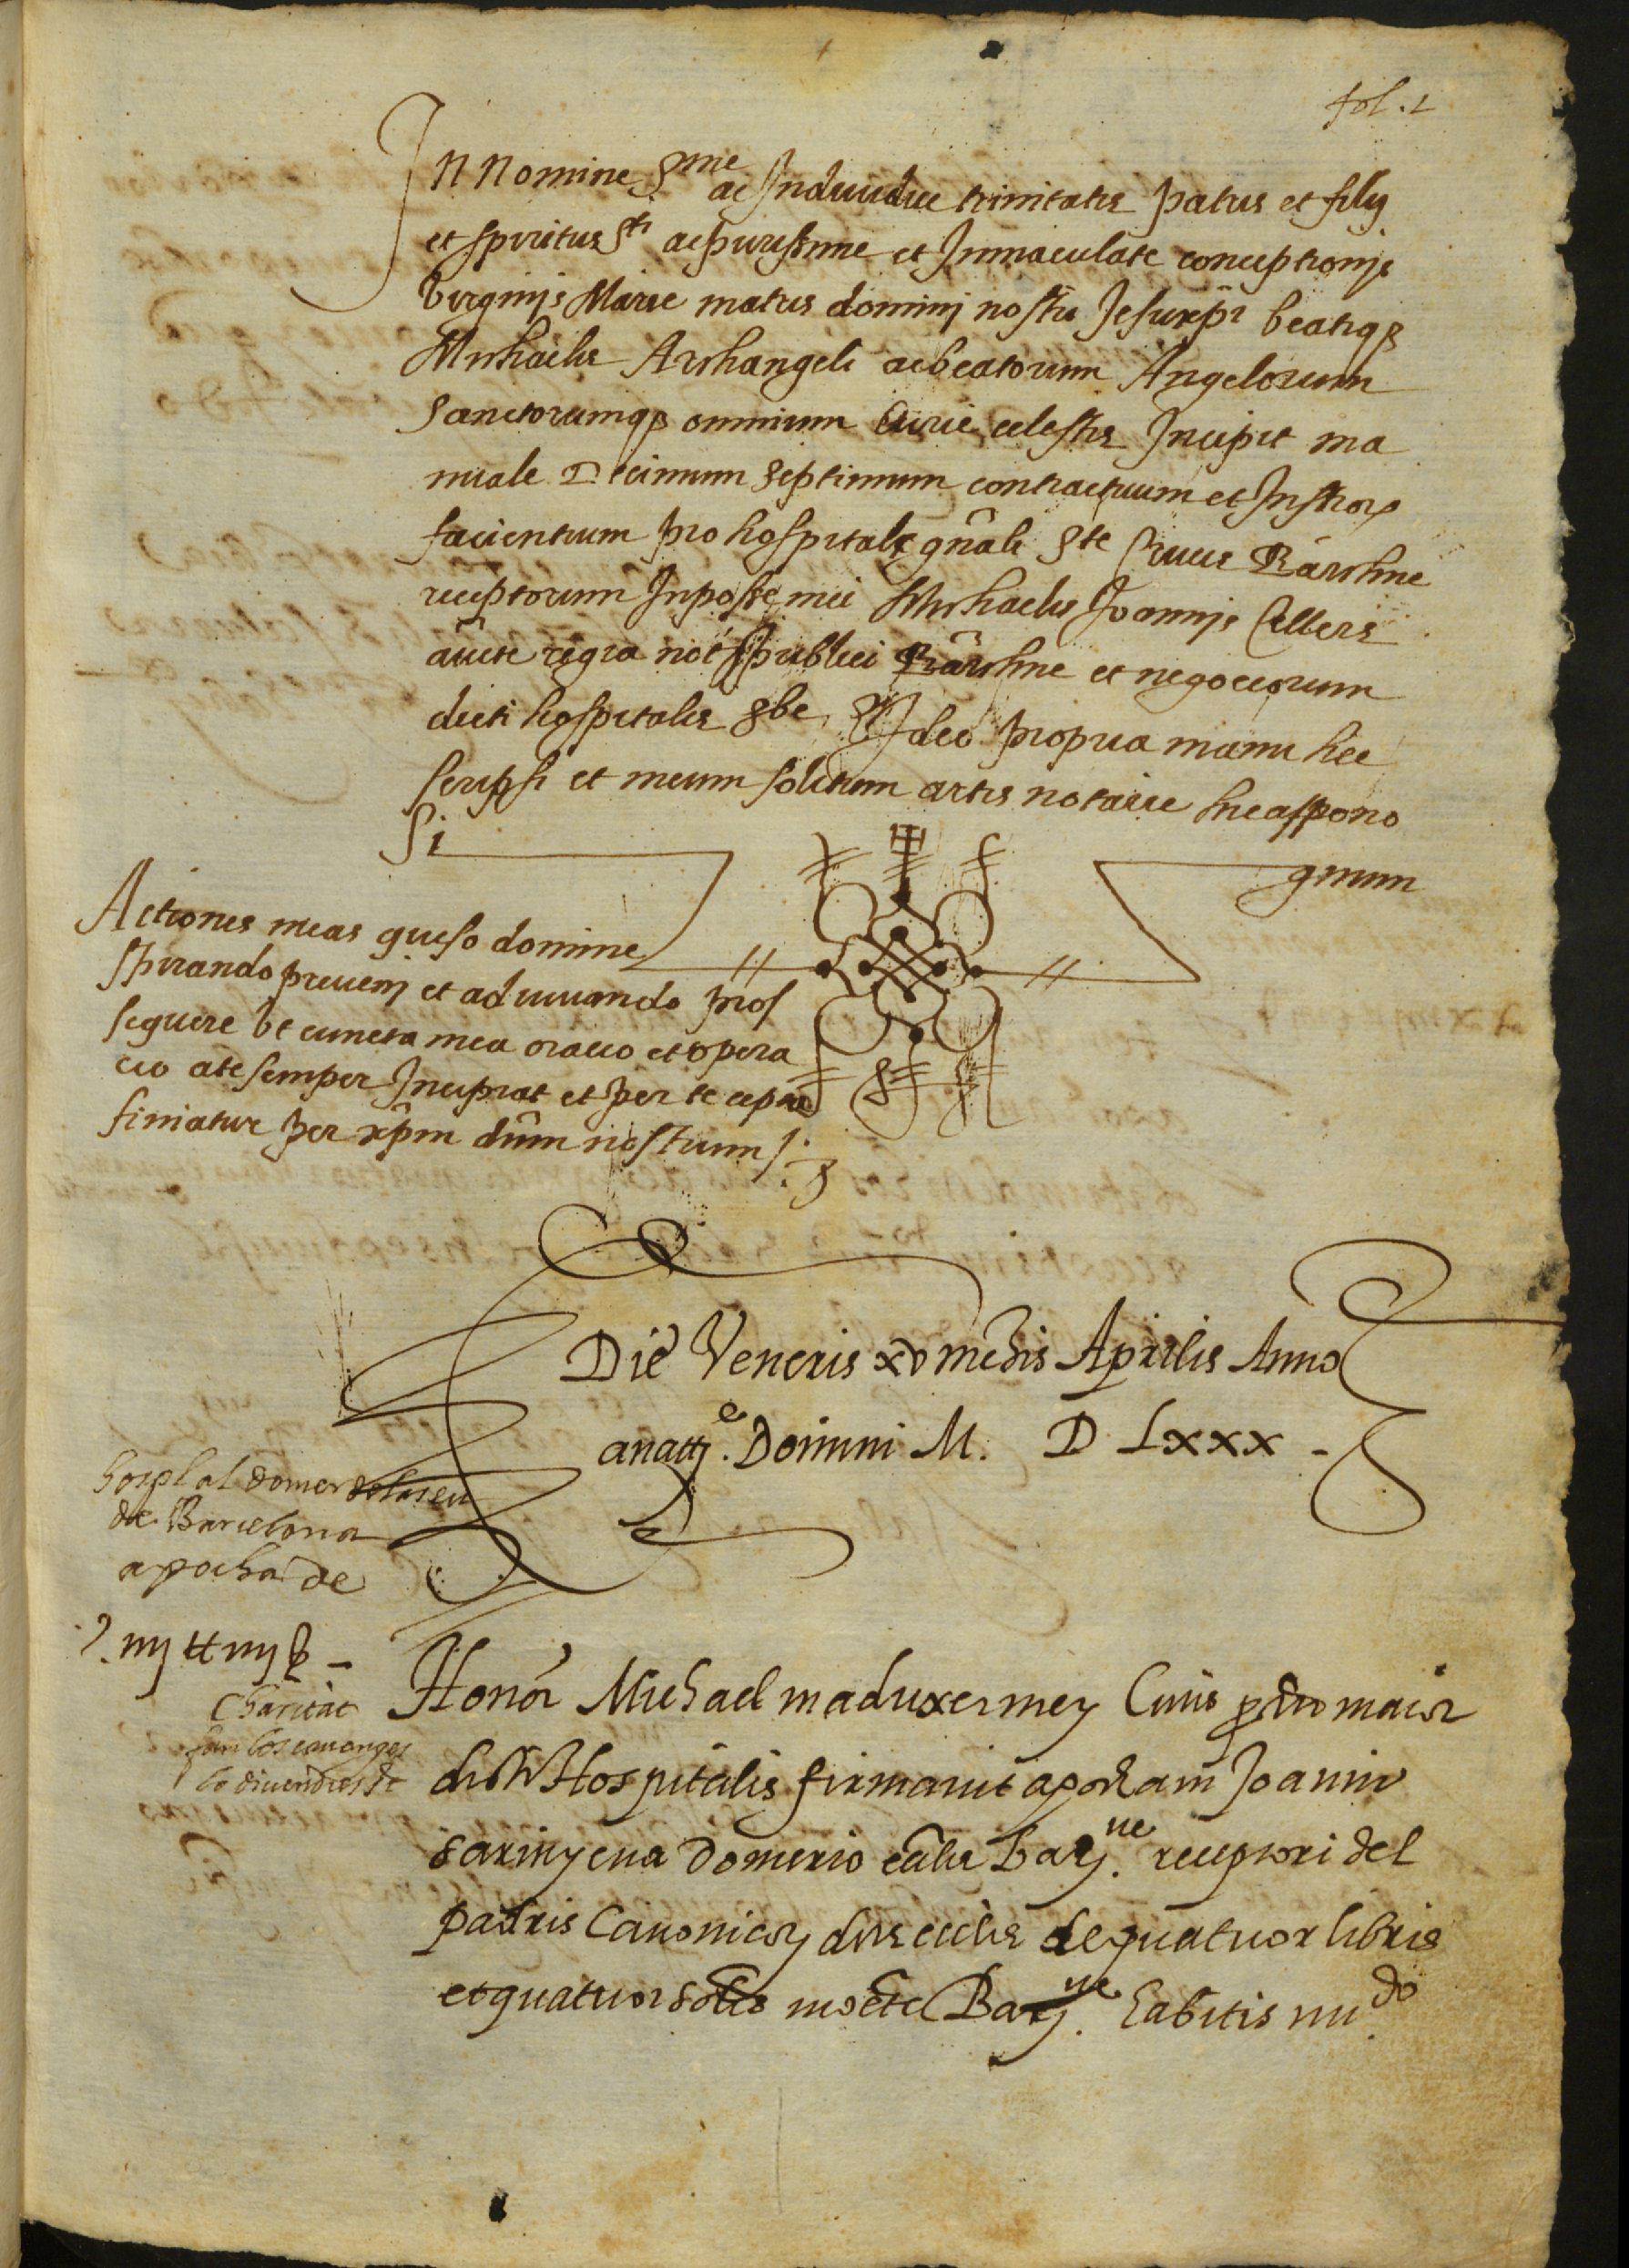 fol. 1
In Nomine Sme ac Individue trinitatis patris et filij
et spiritus Sti ac purissime et Immaculate conceptionis
Virginis Marie matris domini nostri Jesu xpi beatiqꝫ
Michaelis Archangeli ac beatorum Angelorum
Sanctorumqꝫ omnium Curie celestis Incipit ma
nuale Decimum Septimum contractuum et Instrorꝝ
facientium pro hospitale gñali Ste Crucis Barchne
receptorum In posse mei Michaelis Joannis Cellers
aucte regia not publici Barchne et negociorum
dicti hospitalis Sbe Et Ideo propria manu hec
scripsi et meum solitum artis notarie hic appono
Si
gnum
Actiones meas queso domine
spirando preveni et adiuvando pros
sequere Vt cuncta mea oracio et opera
cio a te semper Incipiat et per te cepta
finiatur per xpm dnm nostrum
Die Veneris xv mensis Aprilis Anno
anatte Domini M. D Lxxx
hospl al domer de la seu
de Barcelona
apocha de
iiij tt iiij ß
Charitat
lo divendres st
Honor Michael maduxer mey Civis prior maior
dicti Hospitalis firmavit apocham Joanni
sarinyena Domerio eccle Barne receptori del
patris Canonicorꝝ dicte ecclie de quatuor libris
et quatuor solis monete Barne habitis nudo